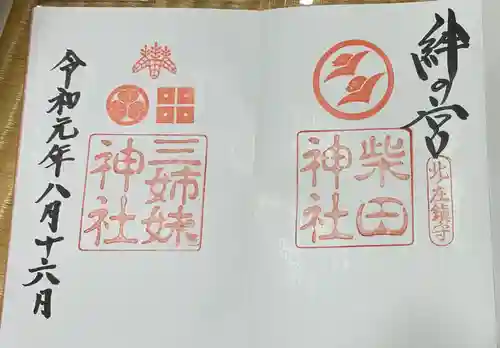 絆の宮
北左鎮守
柴田
神社
三姉妹
神社
令和元年八月十六月